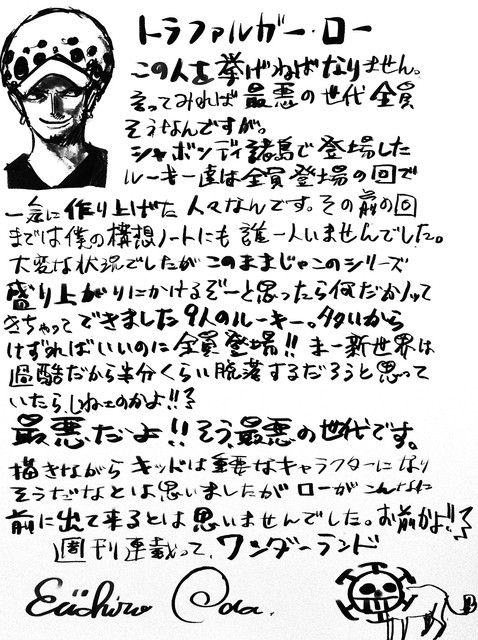 トラファルガー・ロー
この人を挙げねばなりません。
そってみれば最悪の世代全員
そうなんですが。
シャボンディ諸島で登場した
ルーキー達は全員登場の回で
一気に作り上げた人々なんです。その前の回
までは僕の構想ノートにも誰一人いませんでした。
大変な状況でしたがこのままじゃこのシリーズ
盛り上がりにかけるぞーと思ったら何だかノッて
きちゃってできました9人のルーキー。多いから
けずればいいのに全員登場!! まー新世界は
過酷だから半分くらい脱落するだろうと思って
いたら、しねェのかよ!!
最悪だよ!! そう、最悪の世代です。
描きながらキッドは重要なキャラクターになり
そうだなとは思いましたがローがこんなに
前に出て来るとは思いませんでした。お前かよ!!
週刊連載って、ワンダーランド
Eiichiro Oda.